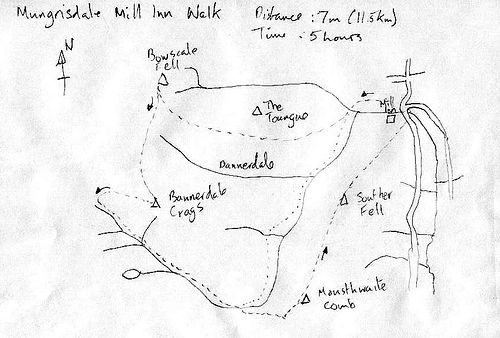 Mungrisdale Mill Inn Walk
Distance : 7m (11.5km)
Time : 5 hours
N
Bowscale
Fell
The
Toungue
Mill
Inn
Bannerdale
Bannerdale
Crags
Souther
Fell
Mousthwaite
Comb